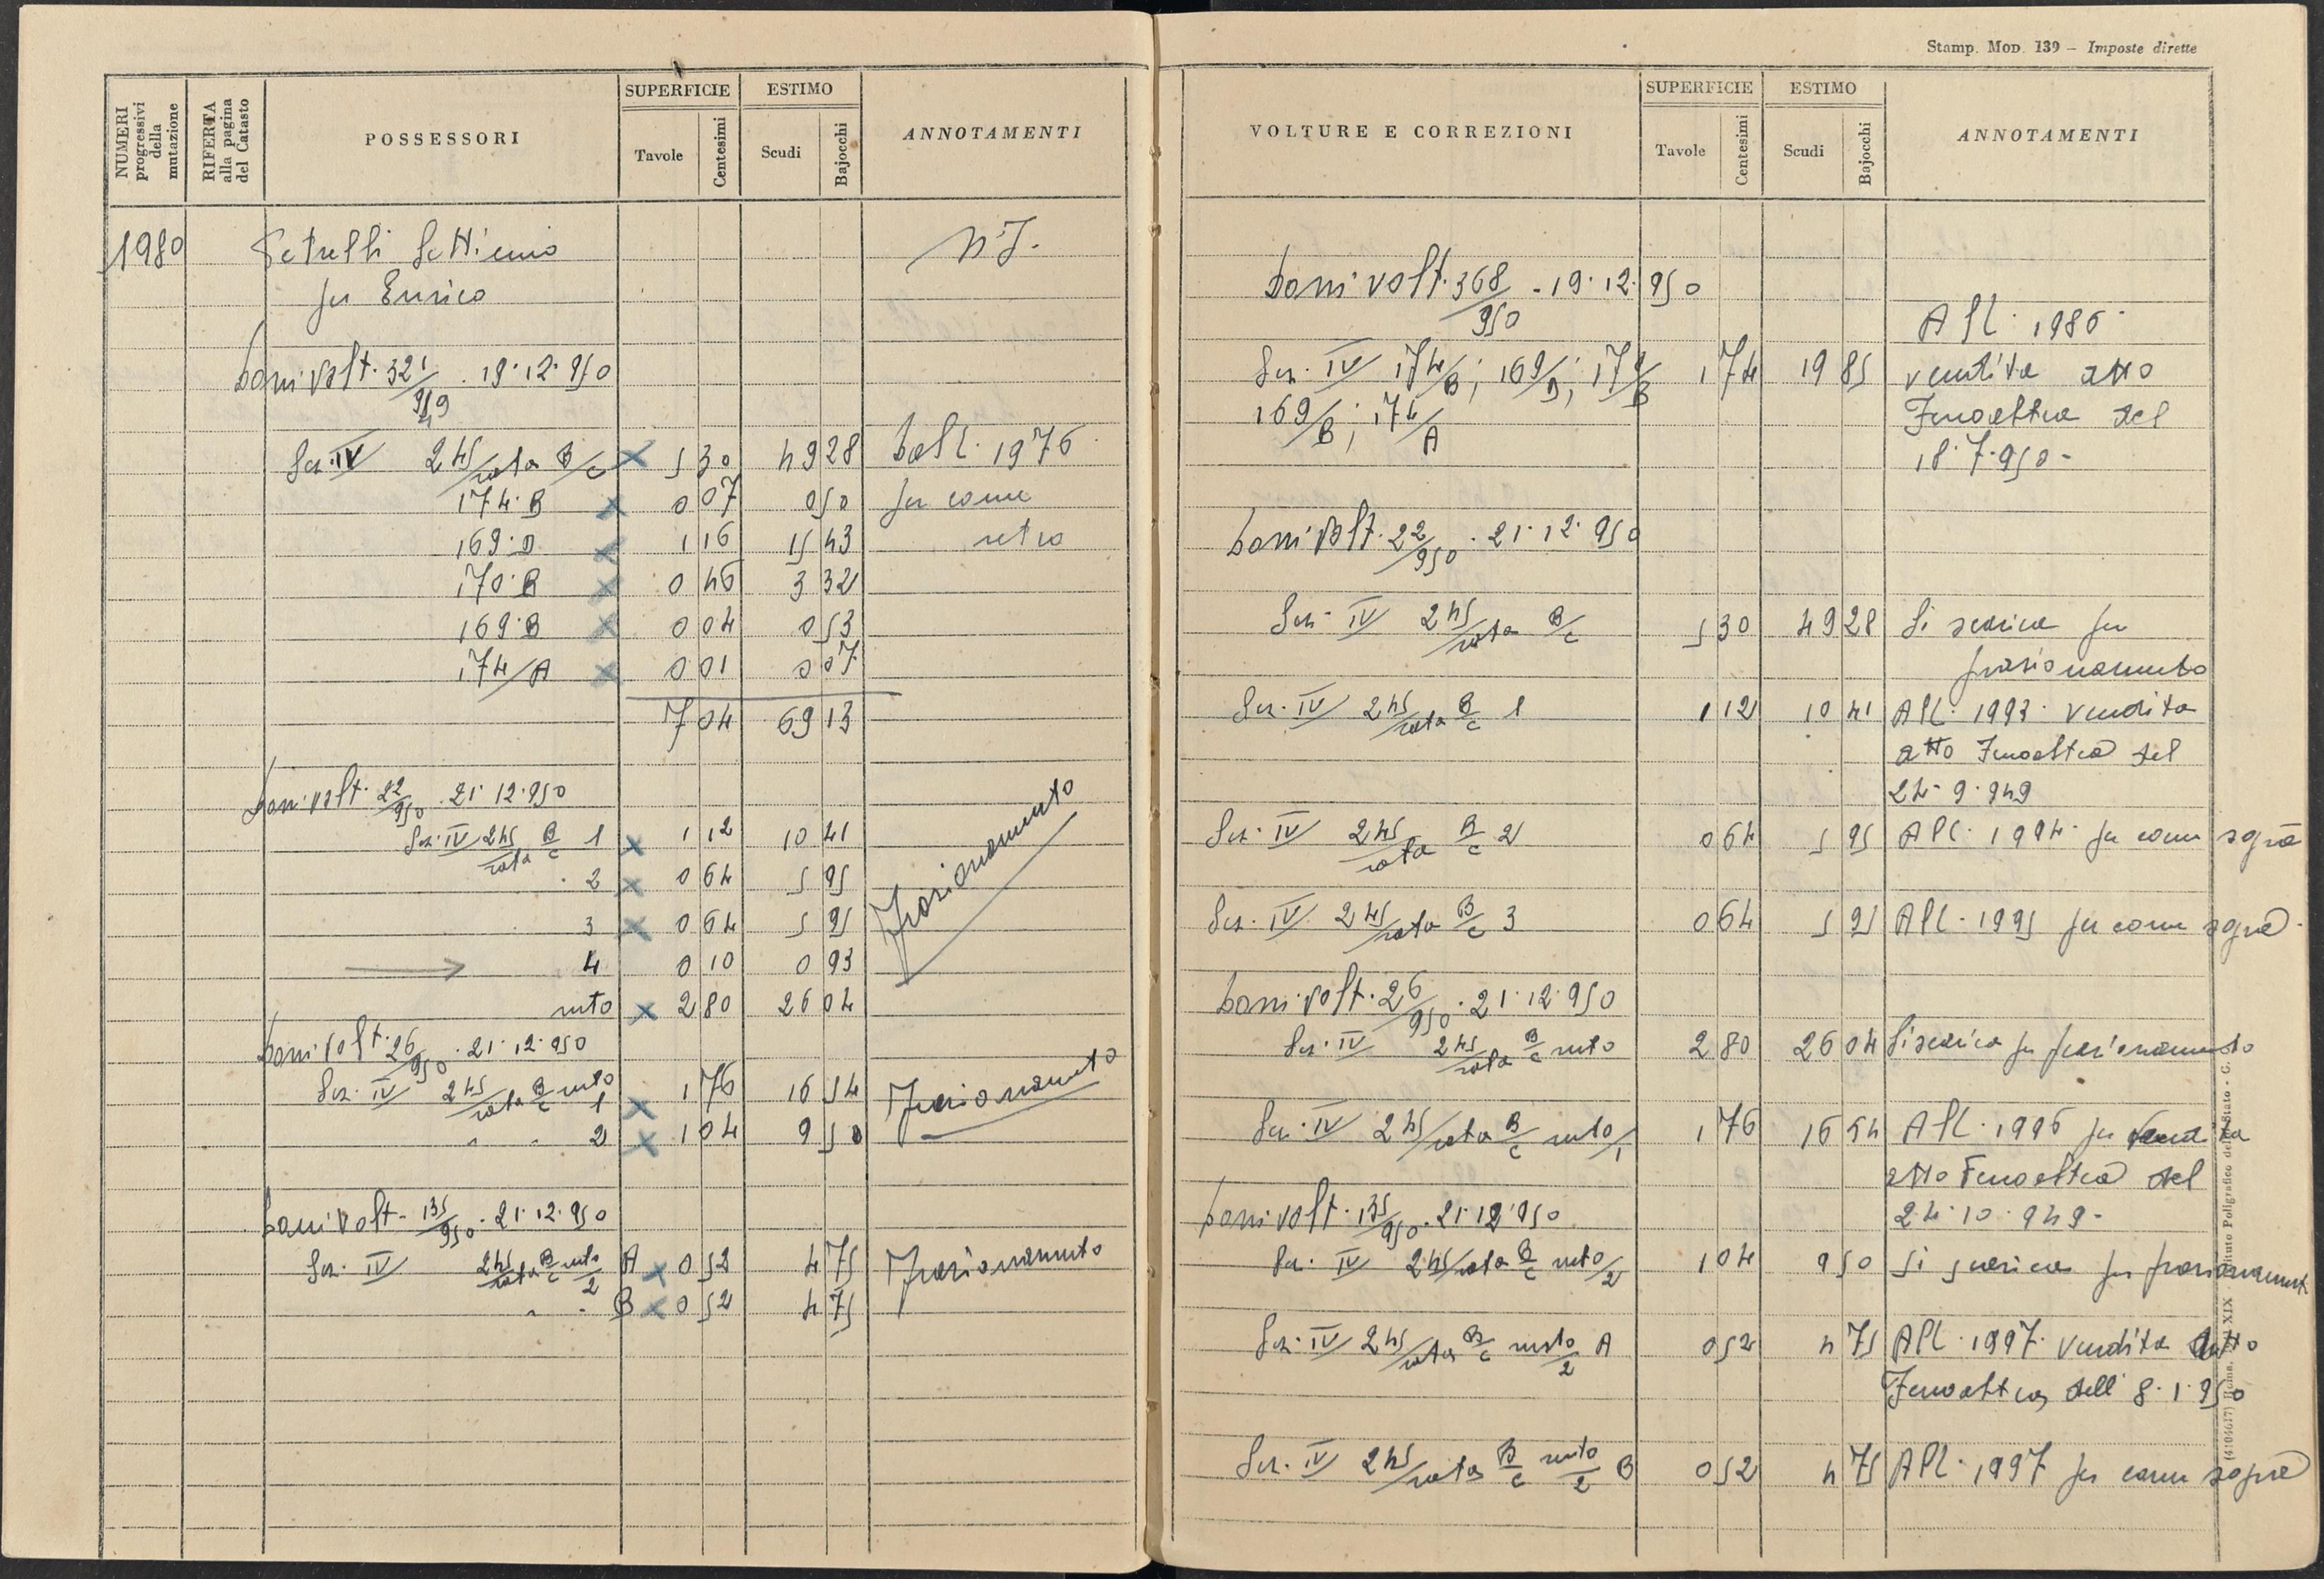 Stamp. Mod. 139 – Imposte dirette
NUMERI progressivi della mutazione
RIFERTA alla pagina del Catasto
POSSESSORI
SUPERFICIE
Tavole
Centesimi
ESTIMO
Scudi
Bajocchi
ANNOTAMENTI
1980 Petrelli Settimio N.I.
per Enrico
321/949 . 19.12.950
Sez. IV 245/rata B/c × 5 30 49 28 Dall. 1976
174.B × 0 07 0 50 per come
169.D × 1 16 15 43 retro
170.B × 0 46 3 32
169.B × 0 04 0 53
174/A × 0 01 0 07
7 04 69 13
22/950 . 21.12.950
Sez. IV 245/rata B/c 1 × 1 12 10 41 Frazionamento
. 2 × 0 64 5 95
3 × 0 64 5 95
4 0 10 0 93
resto × 2 80 26 04
26/950 . 21.12.950
Sez. IV 245/rata B/c resto 1 × 1 76 16 54 Frazionamento
" " 2 × 1 04 9 50
135/950 . 21.12.950
Sez. IV 245/rata B/c resto/2 A × 0 52 4 75 Frazionamento
" " B × 0 52 4 75
VOLTURE E CORREZIONI
SUPERFICIE
Tavole
Centesimi
ESTIMO
Scudi
Bajocchi
ANNOTAMENTI
368/950 - 19.12.950
All. 1986.
Sez. IV 174/B; 169/D; 170/B 1 74 19 85 vendita atto
169/B; 174/A Fenoaltea del
18.7.950-
22/950 . 21.12.950
Sez. IV 245/rata B/c 5 30 49 28 Si scarica per
frazionamento
Sez. IV 245/rata B/c 1 1 12 10 41 All. 1993. vendita
atto Fenoaltea del
24.9.949
Sez. IV 245/rata B/c 2 0 64 5 95 All. 1994. per come sopra
Sez. IV 245/rata B/c 3 0 64 5 95 All. 1995 per come sopra.
26/950 . 21.12.950
Sez. IV 245/rata B/c resto 2 80 26 04 Si scarica per frazionamento
Sez. IV 245/rata B/c resto/1 1 76 16 54 All. 1996 per vendita
atto Fenoaltea del
24.10.949-
135/950 . 21.12.950
Sez. IV 245/rata B/c resto/2 1 04 9 50 Si scarica per frazionamento
Sez. IV 245/rata B/c resto/2 A 0 52 4 75 All. 1997. vendita atto
Fenoaltea dell' 8.1.950
Sez. IV 245/rata B/c resto/2 B 0 52 4 75 All. 1997 per come sopra
Poligrafico dello Stato - G.